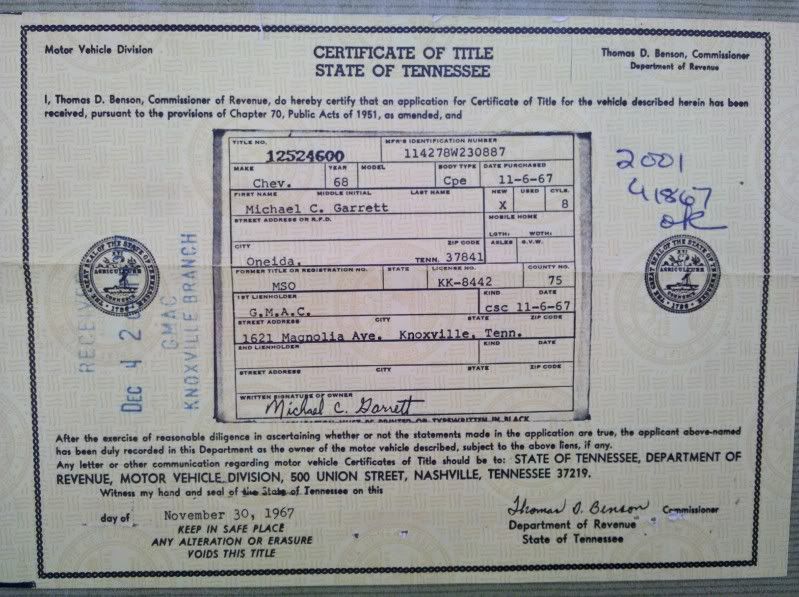 Motor Vehicle Division
CERTIFICATE OF TITLE
STATE OF TENNESSEE
Thomas D. Benson, Commissioner
Department of Revenue
I, Thomas D. Benson, Commissioner of Revenue, do hereby certify that an application for Certificate of Title for the vehicle described herein has been
received, pursuant to the provisions of Chapter 70, Public Acts of 1951, as amended, and
TITLE NO. MFR'S IDENTIFICATION NUMBER
12524600 114278W230887
MAKE YEAR MODEL BODY TYPE DATE PURCHASED
Chev. 68 Cpe 11-6-67
FIRST NAME MIDDLE INITIAL LAST NAME NEW USED CYLS.
Michael C. Garrett X 8
STREET ADDRESS OR R.F.D. MOBILE HOME
LGTH: WDTH:
CITY ZIP CODE AXLES G.V.W.
Oneida. TENN. 37841
FORMER TITLE OR REGISTRATION NO. STATE LICENSE NO. COUNTY NO.
MSO KK-8442 75
1ST LIENHOLDER KIND DATE
G.M.A.C. csc 11-6-67
STREET ADDRESS CITY STATE ZIP CODE
1621 Magnolia Ave. Knoxville, Tenn.
2ND LIENHOLDER KIND DATE
STREET ADDRESS CITY STATE ZIP CODE
WRITTEN SIGNATURE OF OWNER
Michael C. Garrett
MUST BE PRINTED OR TYPEWRITTEN IN BLACK
2001
41867
ok
THE GREAT SEAL OF THE STATE OF TENNESSEE
AGRICULTURE
COMMERCE
1796
THE GREAT SEAL OF THE STATE OF TENNESSEE
AGRICULTURE
COMMERCE
1796
DEC 4 2
GMAC
KNOXVILLE BRANCH
After the exercise of reasonable diligence in ascertaining whether or not the statements made in the application are true, the applicant above-named
has been duly recorded in this Department as the owner of the motor vehicle described, subject to the above liens, if any.
Any letter or other communication regarding motor vehicle Certificates of Title should be to: STATE OF TENNESSEE, DEPARTMENT OF
REVENUE, MOTOR VEHICLE DIVISION, 500 UNION STREET, NASHVILLE, TENNESSEE 37219.
Witness my hand and seal of the State of Tennessee on this
day of November 30, 1967
Thomas D. Benson Commissioner
Department of Revenue
State of Tennessee
KEEP IN SAFE PLACE
ANY ALTERATION OR ERASURE
VOIDS THIS TITLE